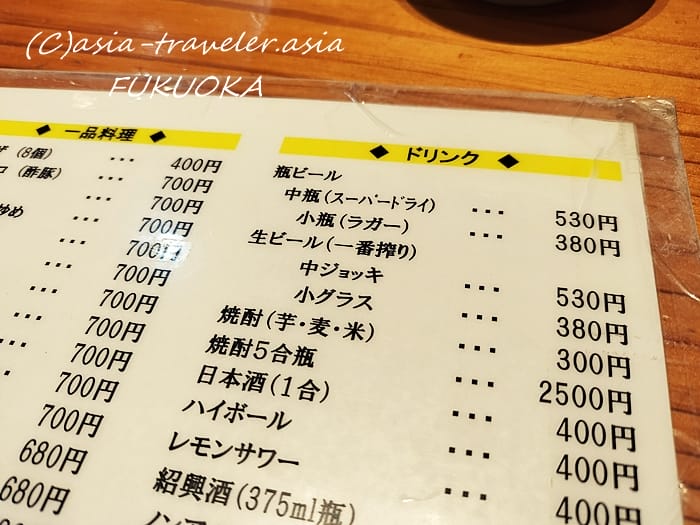 (C)asia-traveler.asia
FUKUOKA
◆ 一品料理 ◆
(8個) ... 400円
(酢豚) ... 700円
... 700円
炒め ... 700円
... 700円
... 700円
... 700円
... 700円
... 700円
700円
700円
680円
680円
◆ ドリンク ◆
瓶ビール
中瓶(スーパードライ) ... 530円
小瓶(ラガー) ... 380円
生ビール(一番搾り)
中ジョッキ ... 530円
小グラス ... 380円
焼酎(芋・麦・米) ... 300円
焼酎5合瓶 ... 2500円
日本酒(1合) ... 400円
ハイボール ... 400円
レモンサワー ... 400円
紹興酒(375ml瓶)